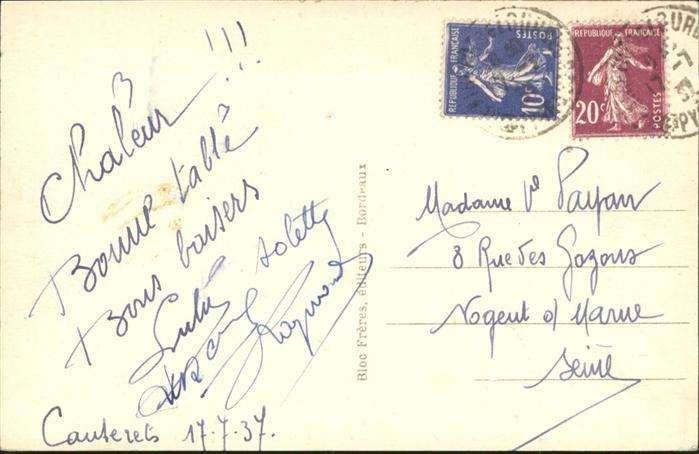 Chaleur !!!
Bonne table
Bons baisers
Lulu Solette
Raymond
Cauterets 17.7.37.
Bloc Frères, éditeurs - Bordeaux
REPUBLIQUE FRANÇAISE
POSTES
10c
REPUBLIQUE FRANÇAISE
POSTES
20c
Madame Ve Payan
8 Rue des Gazons
Nogent s/ Marne
Seine